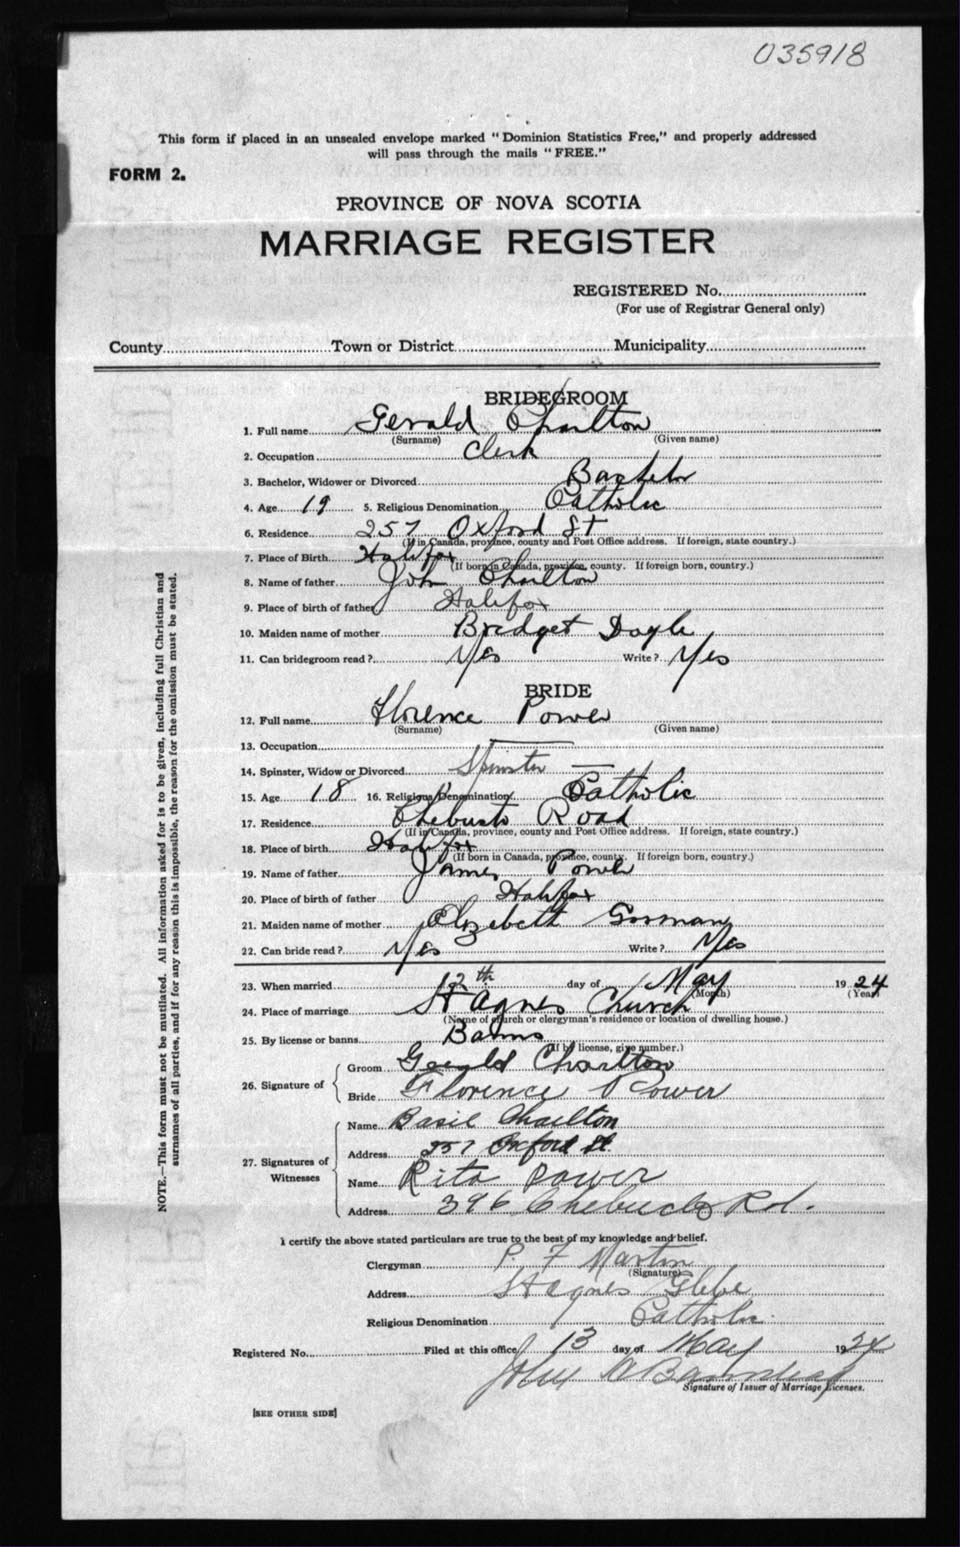 035918
This form if placed in an unsealed envelope marked "Dominion Statistics Free," and properly addressed
will pass through the mails "FREE."
FORM 2.
PROVINCE OF NOVA SCOTIA
MARRIAGE REGISTER
REGISTERED No.
(For use of Registrar General only)
County Town or District Municipality
BRIDEGROOM
1. Full name Gerald Charlton
(Surname) (Given name)
2. Occupation Clerk
3. Bachelor, Widower or Divorced Bachelor
4. Age 19 5. Religious Denomination Catholic
6. Residence 257 Oxford St
(If in Canada, province, county and Post Office address. If foreign, state country.)
7. Place of Birth Halifax
(If born in Canada, province, county. If foreign born, country.)
8. Name of father John Charlton
9. Place of birth of father Halifax
10. Maiden name of mother Bridget Doyle
11. Can bridegroom read? Yes Write? Yes
BRIDE
12. Full name Florence Power
(Surname) (Given name)
13. Occupation
14. Spinster, Widow or Divorced Spinster
15. Age 18 16. Religious Denomination Catholic
17. Residence Chebucto Road
(If in Canada, province, county and Post Office address. If foreign, state country.)
18. Place of birth Halifax
(If born in Canada, province, county. If foreign born, country.)
19. Name of father James Power
20. Place of birth of father Halifax
21. Maiden name of mother Elizebeth Gorman
22. Can bride read? Yes Write? Yes
23. When married 12th day of May 1924
(Month) (Year)
24. Place of marriage St Agnes Church
(Name of church or clergyman's residence or location of dwelling house.)
25. By license or banns Banns
(If by license, give number.)
26. Signature of Groom Gerald Charlton
Bride Florence Power
27. Signatures of Witnesses Name Basil Charlton
Address 257 Oxford St.
Name Rita Power
Address 396 Chebucto Rd.
I certify the above stated particulars are true to the best of my knowledge and belief.
Clergyman P. F Martin
(Signature)
Address St Agnes Glebe
Religious Denomination Catholic
Registered No. Filed at this office 13 day of May 1924
John A
Signature of Issuer of Marriage Licenses.
[SEE OTHER SIDE]
NOTE.—This form must not be mutilated. All information asked for is to be given, including full Christian and
surnames of all parties, and if for any reason this is impossible, the reason for the omission must be stated.